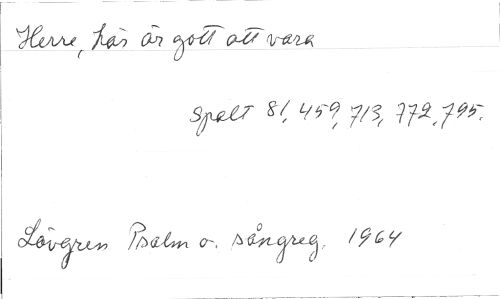 Herre, här är gott att vara
Spalt 81, 459, 713, 772, 795.
Lövgren Psalm o. sångreg. 1964